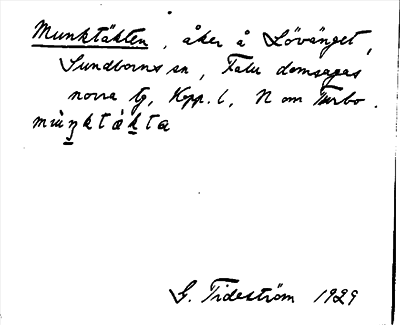 Munktäkten, åker å Lövänget,
Sundborns sn, Falu domsagas
norra tg, Kopp. l, N om Turbo.
mùŋktákta
G. Tideström 1929